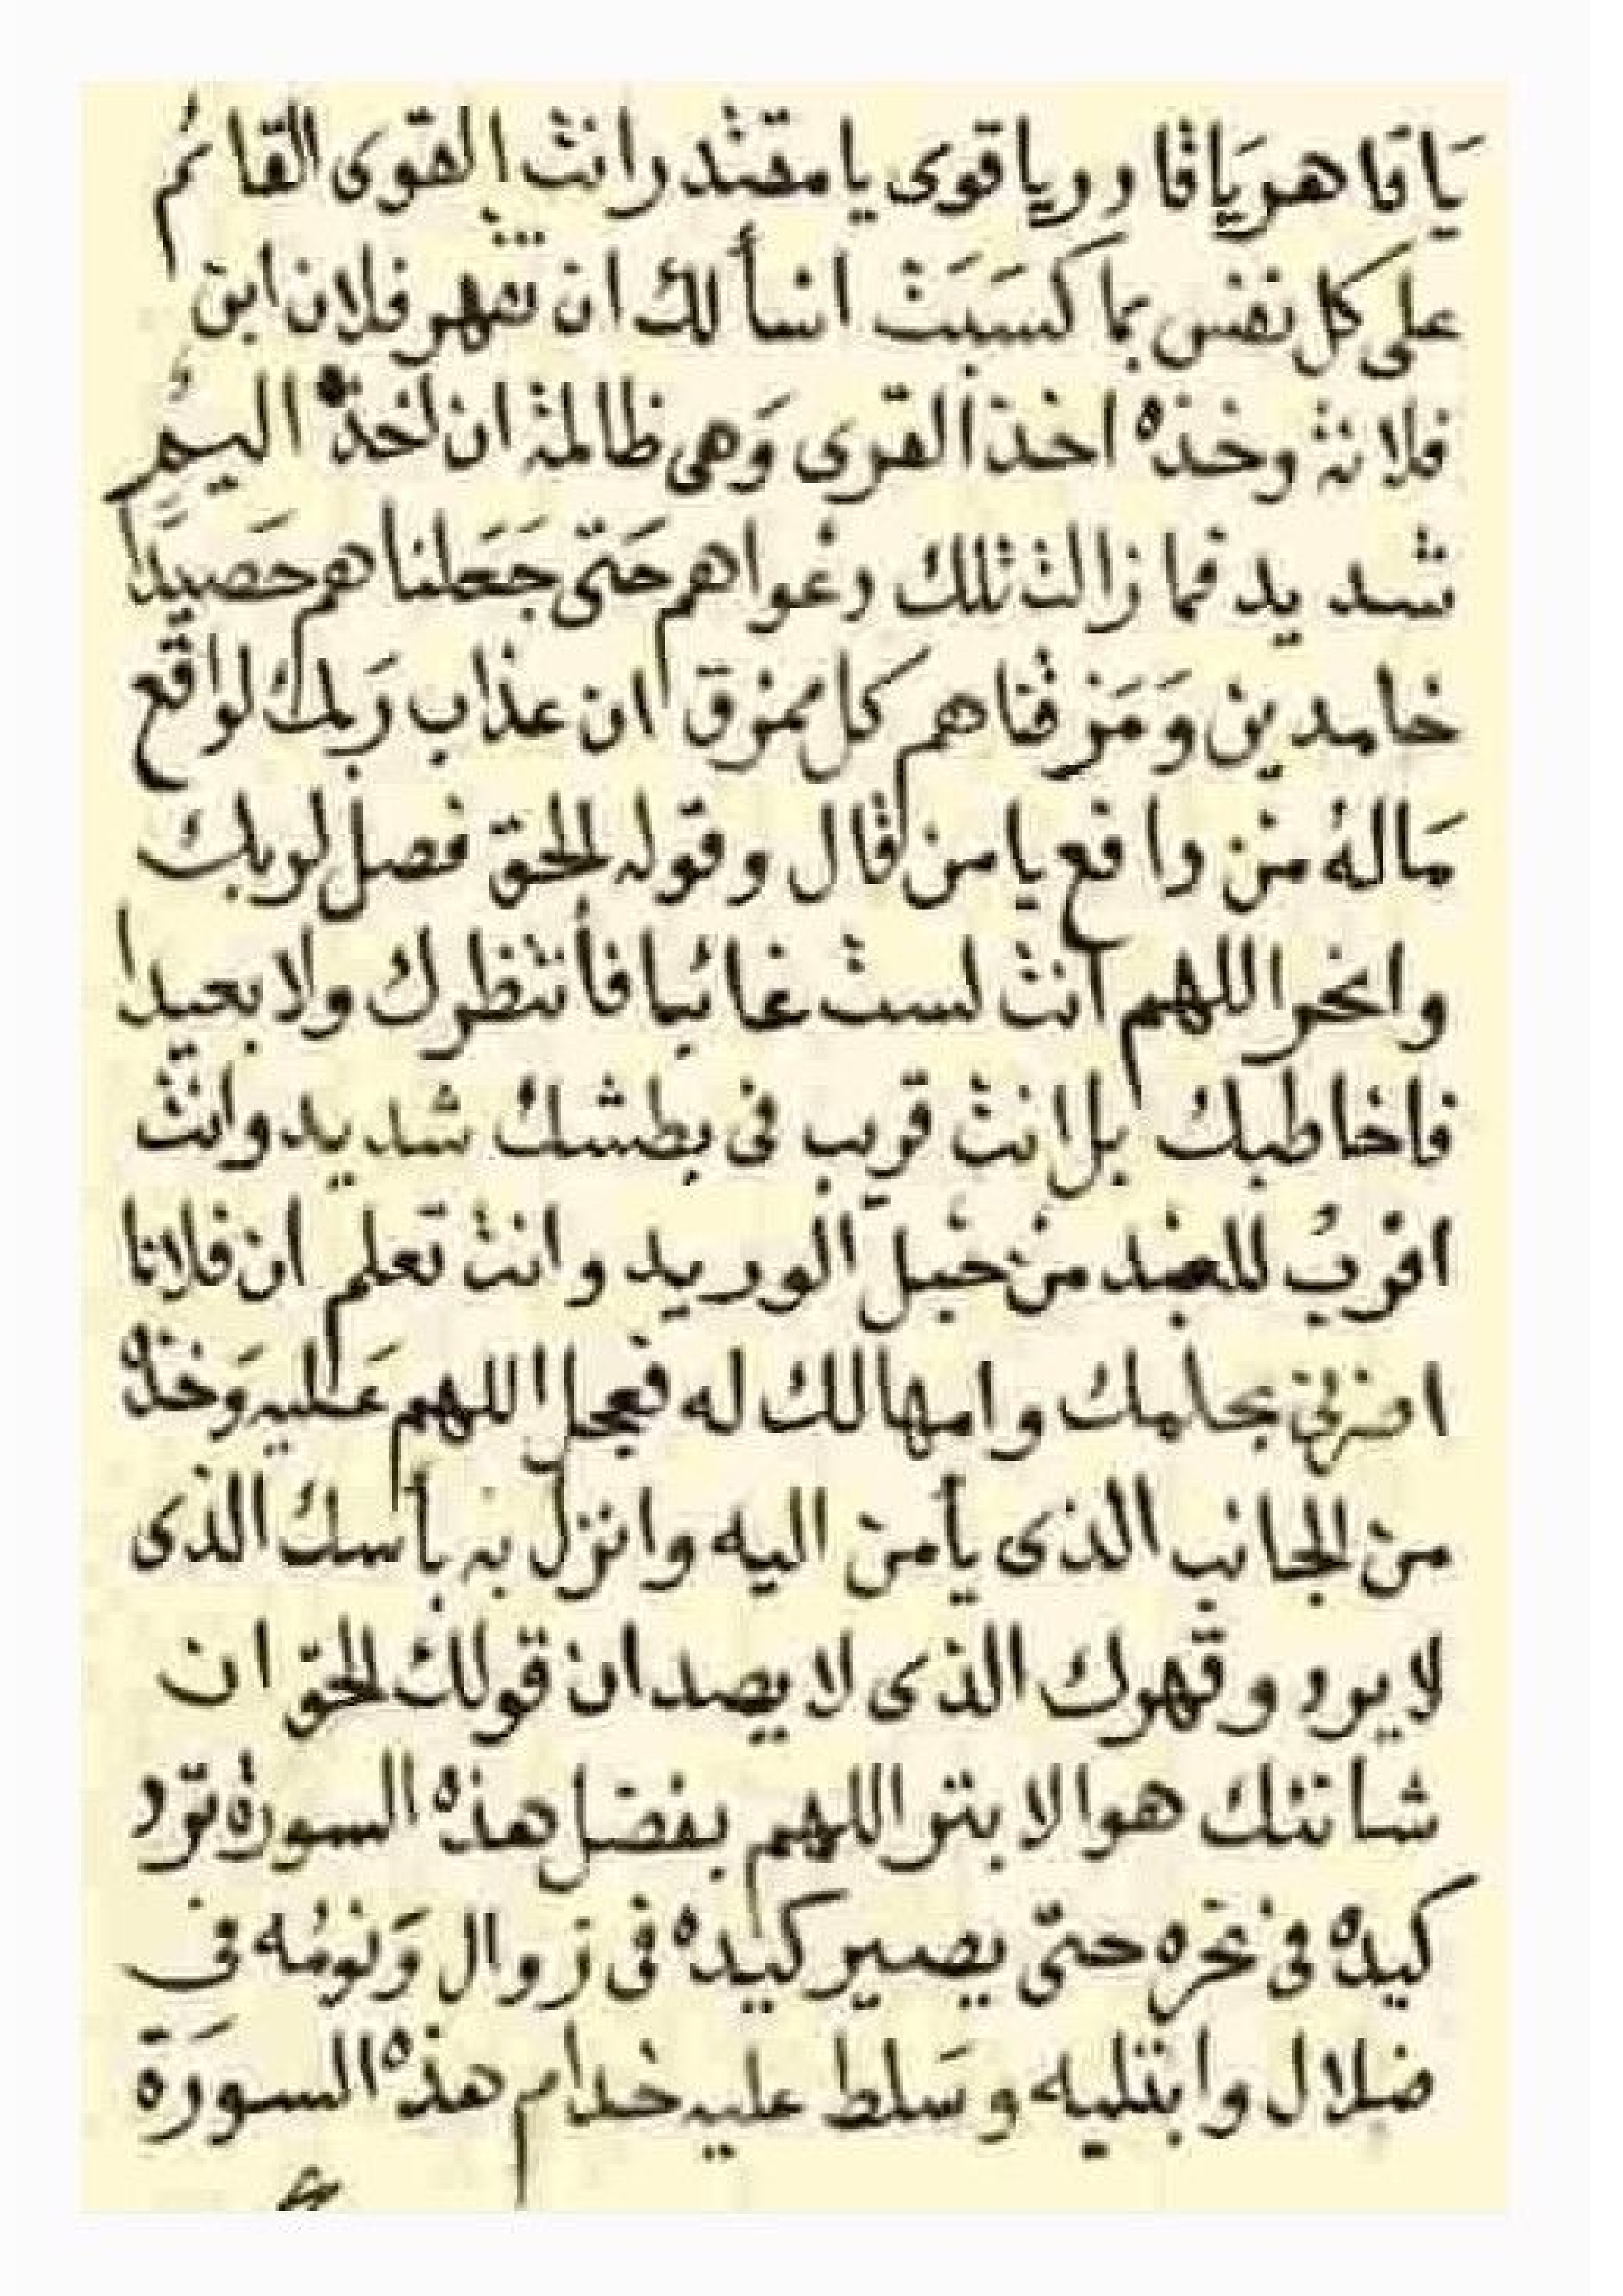 يَا قاهر يَا قادر يا قوى يا مقتدر انت القوى القائم
على كل نفس بما كسَبَت اسأ لك ان تقهر فلان ابن
فلانة وخذه اخذ القرى وَهى ظالمة ان اخذه اليم
شديد فما زالت تلك دعواهم حَتى جَعَلناهم حَصيدًا
خامدين وَمَزقناهم كل ممزق ان عذاب رَبك لواقع
مَاله من دافع يا من قال وقوله الحق فصل لربك
وانحر اللهم انت لست غائبا فأنتظرك ولا بعيدا
فاخاطبك بل انت قريب فى بطشك شديد وانت
اقربُ للعبد من حبل الوريد وانت تعلم ان فلانا
اضرنى بحلمك وامهالك له فعجل اللهم عَليه وَخذه
من الجانب الذى يأمن اليه وانزل به بأسك الذى
لا يرد وقهرك الذى لا يصد ان قولك الحق ان
شانئك هو الا بتر اللهم بفضل هذه السورة ترد
كيده فى نحره حتى يصير كيده فى زوال وَنومُه فى
ضلال وابتليه وسَلط عليه خدام هذه السورَة